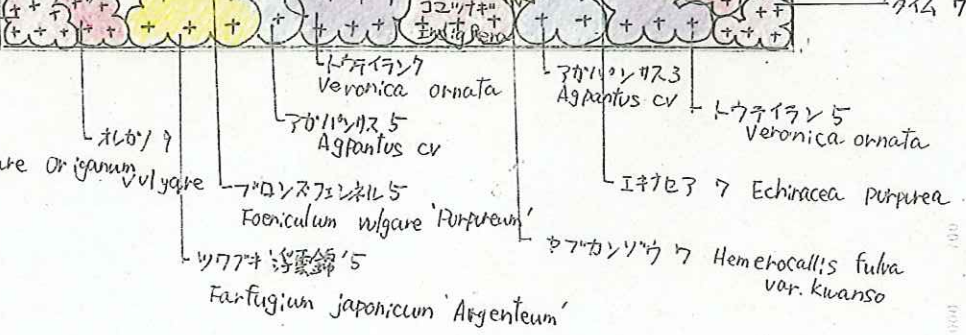 コマツナギ
Indigofera
タイム 7
トウテイラン 7
Veronica ornata
アガパンサス 3
Agpantus cv
トウテイラン 5
Veronica ornata
アガパンサス 5
Agpantus cv
オレガノ 9
are Origanum vulgare
ブロンズフェンネル 5
Foeniculum vulgare 'Purpureum'
エキナセア 7 Echinacea purpurea
ツワブキ '浮雲錦' 5
Farfugium japonicum 'Argenteum'
ヤブカンゾウ 7 Hemerocallis fulva
var. kwanso